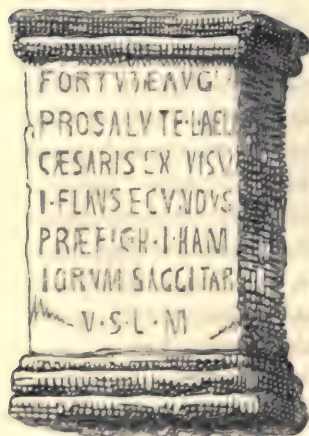 FORTVNÆ AVG
PRO SALVTE·L·AELI
CÆSARIS EX VISV
T·FLAVS ECVNDVS
PRÆF·COH·I·HAM
IORVM SAGGITAR
V·S·L·M